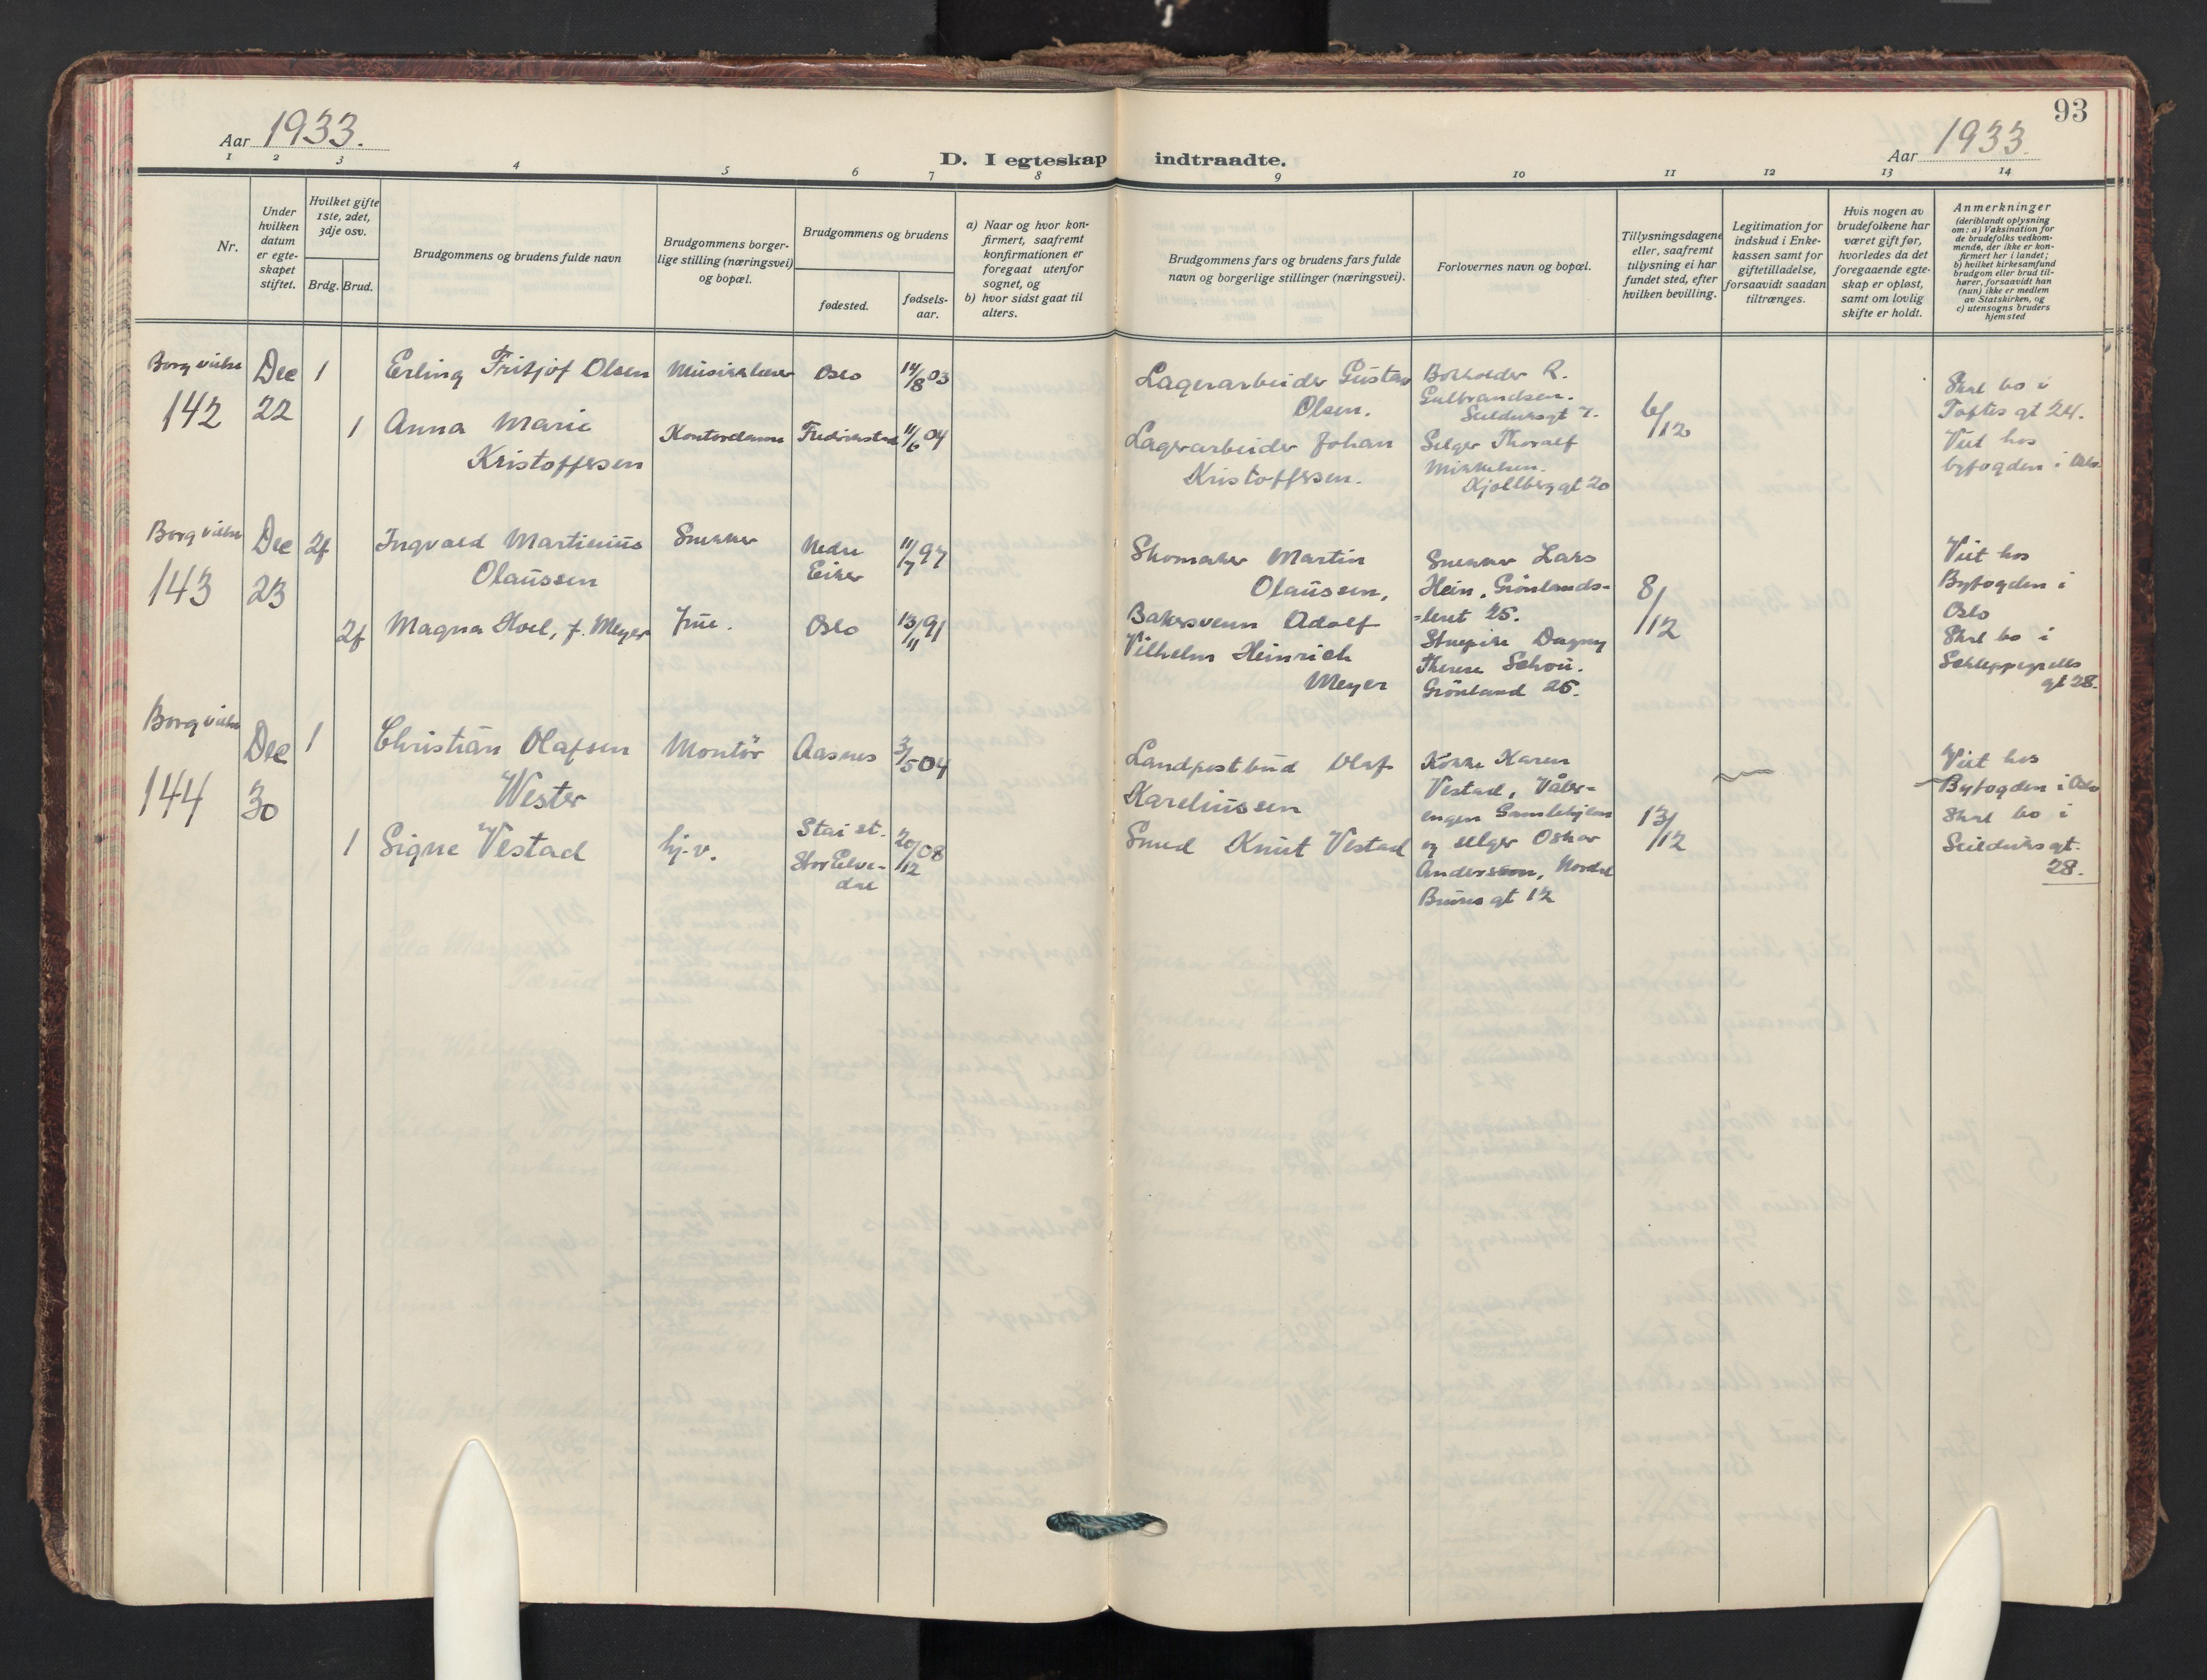 93
Aar 1933.
Aar 1933.
D. I egteskap indtraadte.
1 2 3 4 5 6 7 8 9 10 11 12 13 14
Nr.
Under hvilken datum er egte-skapet stiftet.
Hvilket gifte 1ste, 2det, 3dje osv.
Brdg. Brud.
Brudgommens og brudens fulde navn
Brudgommens borger-lige stilling (næringsvei) og bopæl.
Brudgommens og brudens
fødested.
fødsels-aar.
a) Naar og hvor kon-firmert, saafremt konfirmationen er foregaat utenfor sognet, og
b) hvor sidst gaat til alters.
Brudgommens fars og brudens fars fulde navn og borgerlige stillinger (næringsvei).
Forlovernes navn og bopæl.
Tillysningsdagene eller, saafremt tillysning ei har fundet sted, efter hvilken bevilling.
Legitimation for indskud i Enke-kassen samt for giftetilladelse, forsaavidt saadan tiltrænges.
Hvis nogen av brudefolkene har været gift før, hvorledes da det foregaaende egte-skap er opløst, samt om lovlig skifte er holdt.
Anmerkninger
(deriblandt oplysning om: a) Vaksination for de brudefolks vedkom-mende, der ikke er kon-firmert her i landet;
b) hvilket kirkesamfund brudgom eller brud til-hører, forsaavidt han (hun) ikke er medlem av Statskirken, og
c) utensogns bruders hjemsted
Borg vielse
142
Dec
22
1
Erling Fritjof Olsen
Musikklærer
Oslo
14/8 03
Lagerarbeider Gustav
Olsen.
Bokholder R.
Gulbrandsen.
Seildugsgt 7.
6/12
Skal bo i
Toftes gt 24.
Viet hos
byfogden i Oslo
1
Anna Marie
Kristoffersen
Kontordame
Fredrikstad
11/6 04
Lagerarbeider Johan
Kristoffersen.
Selger Thoralf
Mikkelsen.
Kjøllberggt 20
Borg vielse
143
Dec
23
2f
Ingvald Martinius
Olaussen
Snekker
Nedre
Eiker
11/7 97
Skomaker Martin
Olaussen,
Snekker Lars
Hein, Grønlands-
-leret 25.
8/12
Viet hos
Byfogden i
Oslo
Skal bo i
Schleppegrells
gt 28.
2f
Magna Hoel, f. Meyer
Frue.
Oslo
13/11 91
Bakersvenn Adolf
Vilhelm Heinrich
Meyer
Dagny
Therese Schou.
Grønland 25.
Borg vielse
144
Dec
30
1
Christian Olafsen
Wester
Montör
Aasnes
3/5 04
Landpostbud Olaf
Kareliussen
Kokke Karen
Vestad, Våler-
engen Gamlehjem
og selger Oskar
Anderssen, Nordal
Bruns gt 12
13/12
Viet hos
Byfogden i Oslo
Skal bo i
Seildugsgt.
28.
1
Signe Vestad
hj.v.
Stai st.
Stor Elve-
dal
20/12 08
Smed Knut Vestad